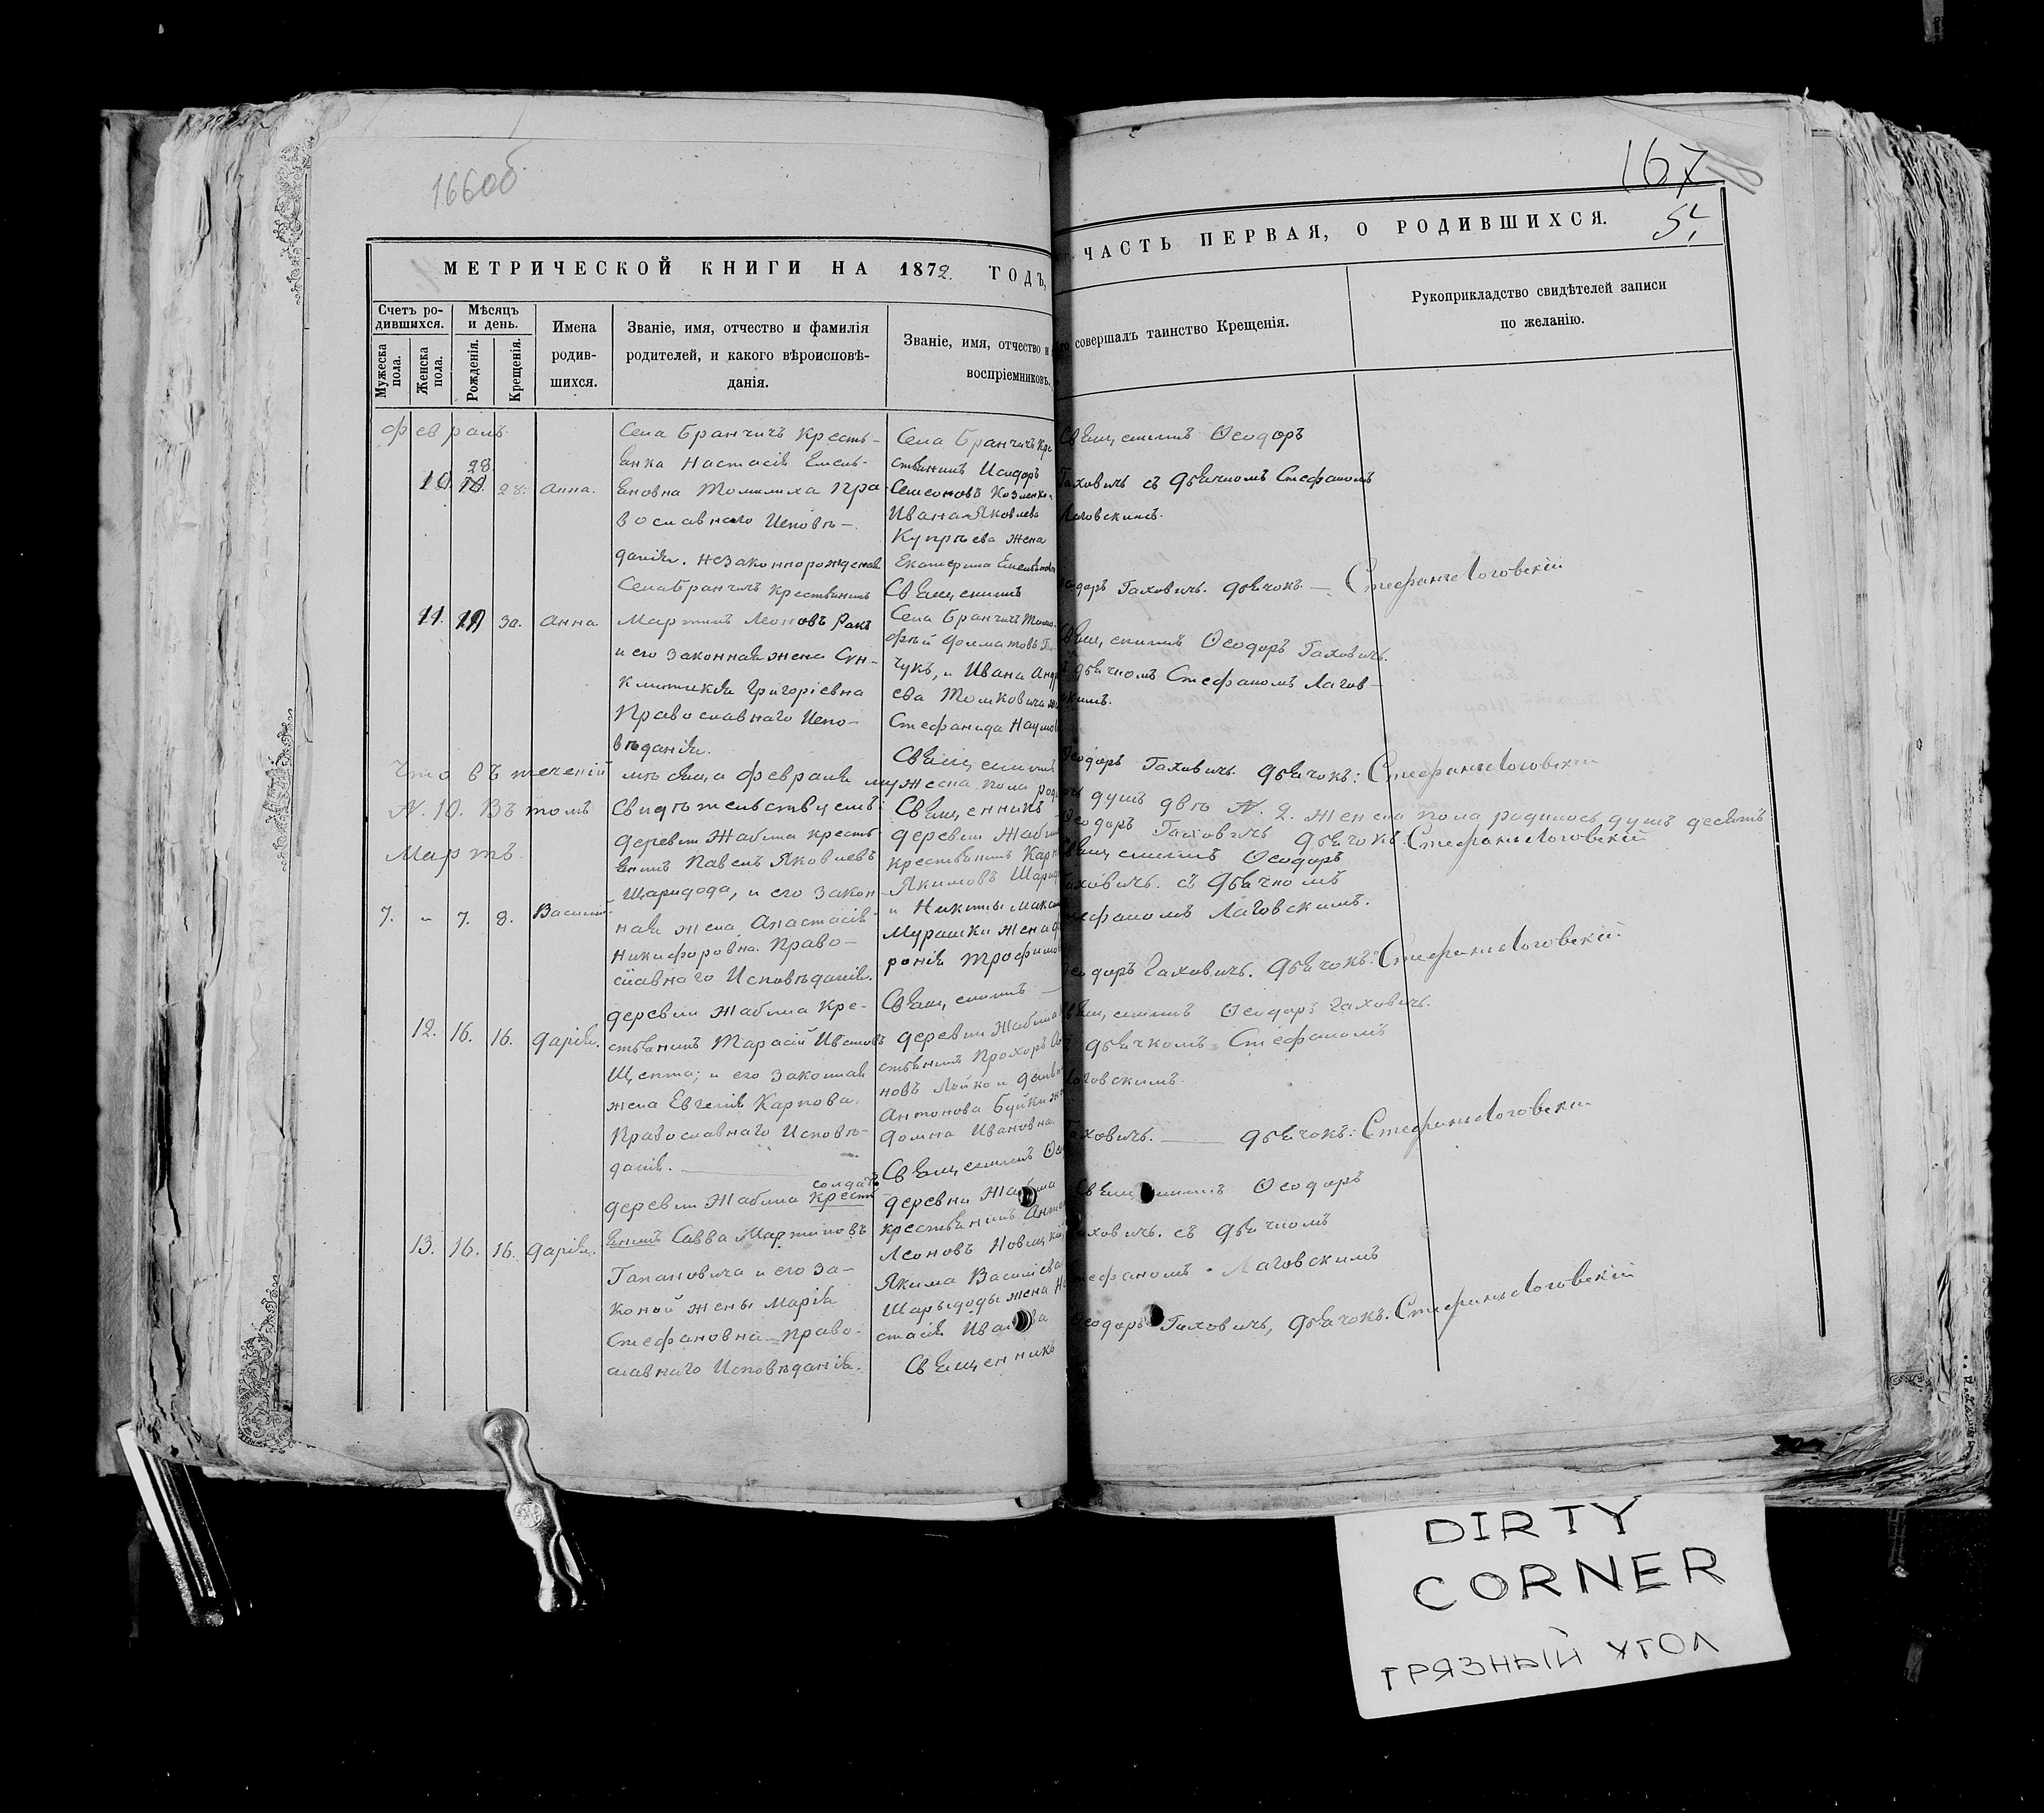 166об
167
МЕТРИЧЕСКОЙ КНИГИ НА 1872. ГОДЪ,
ЧАСТЬ ПЕРВАЯ, О РОДИВШИХСЯ.
Счетъ ро-
дившихся.
Мужеска
пола.
Женска
пола.
Мѣсяцъ
и день.
Рожденія.
Крещенія.
Имена
родив-
шихся.
Званіе, имя, отчество и фамилія
родителей, и какого вѣроисповѣ-
данія.
Званіе, имя, отчество и
воспріемниковъ.
совершалъ таинство Крещенія.
Рукоприкладство свидѣтелей записи
по желанію.
Февраль
10. 28. 28. Анна.
Села Бранчичъ Кресть-
янка Настасія Емель-
яновна Томилиха Пра-
вославнаго Исповѣ-
данія. Незаконнорожденая
Села Бранчичъ Кре
стьянинъ Исидоръ
Семеоновъ Козленко
Ивана Яковлева
Купрѣева жена
Екатерина
Священникъ
Священникъ Ѳеодоръ
Гаховичъ съ дьячкомъ Стефаномъ
Лаговскимъ.
Гаховичъ. дьячокъ — Стефанъ Логовскій
11. 30. Анна
Села Бранчичъ Крестьянинъ
Мартинъ Леоновъ Ракъ
и его законная жена Син-
клитикія Григоріевна
Православнаго Испо-
вѣданія.
Села Бранчичъ
чукъ, и Ивана
ева Томковича
Стефанида
Священникъ
Священникъ Ѳеодоръ Гаховичъ.
дьячкомъ Стефаномъ Лагов-
скимъ.
Ѳеодоръ Гаховичъ. Дьячокъ: Стефанъ Логовскій
Что въ теченій мѣсяца февраля муже­ска пола душъ двѣ N. 2. женска пола родилось душъ десять
N. 10. Въ томъ Свидѣтельствуемъ: Священникъ Ѳеодоръ Гаховичъ дьячокъ: Стефанъ Логовскій
Мартъ
7. " 7. 8. Василій.
деревни Жабина кресть-
янинъ Павелъ Яковлевъ
Шаридода, и его закон-
ная жена Анастасія
Никифоровна. Право-
славнаго Исповѣданія.
деревни
крестьянинъ
Якимовъ
и Никиты
Мурашки жена
Священникъ
Священникъ Ѳеодоръ
Гаховичъ. съ Дьячкомъ
Стефаномъ Лаговскимъ.
Ѳеодоръ Гаховичъ. Дьячокъ: Стефанъ Логовскій
12. 16. 16. Дарія.
деревни Жабина Кре-
стьянинъ Тарасій Ивановъ
Щепта; и его законная
жена Евгенія Карпова.
Православнаго Исповѣ-
данія.
деревни
стьянинъ Прохоръ
новъ Лойко и
Антонова Буйки
Домна Ивановна.
Священникъ
Священникъ Ѳеодоръ Гаховичъ.
дьячкомъ Стефаномъ
Логовскимъ.
Гаховичъ. — Дьячокъ: Стефанъ Логовскій
13. 16. 16. Дарія.
деревни Жабина солдатъ крест-
янинъ Савва Мартиновъ
Гапановича и его за-
коной жены Марія
Стефановна Право-
славнаго Исповѣданія.
деревни
крестьянинъ
Леоновъ Новицкій
Якима
Шарыдоды жена
стасія
Священникъ
Священникъ Ѳеодоръ
Гаховичъ. съ Дьячкомъ
Стефаномъ Лаговскимъ
Ѳеодоръ Гаховичъ, Дьячокъ: Стефанъ Логовскій
DIRTY
CORNER
ГРЯЗНЫЙ УГОЛ